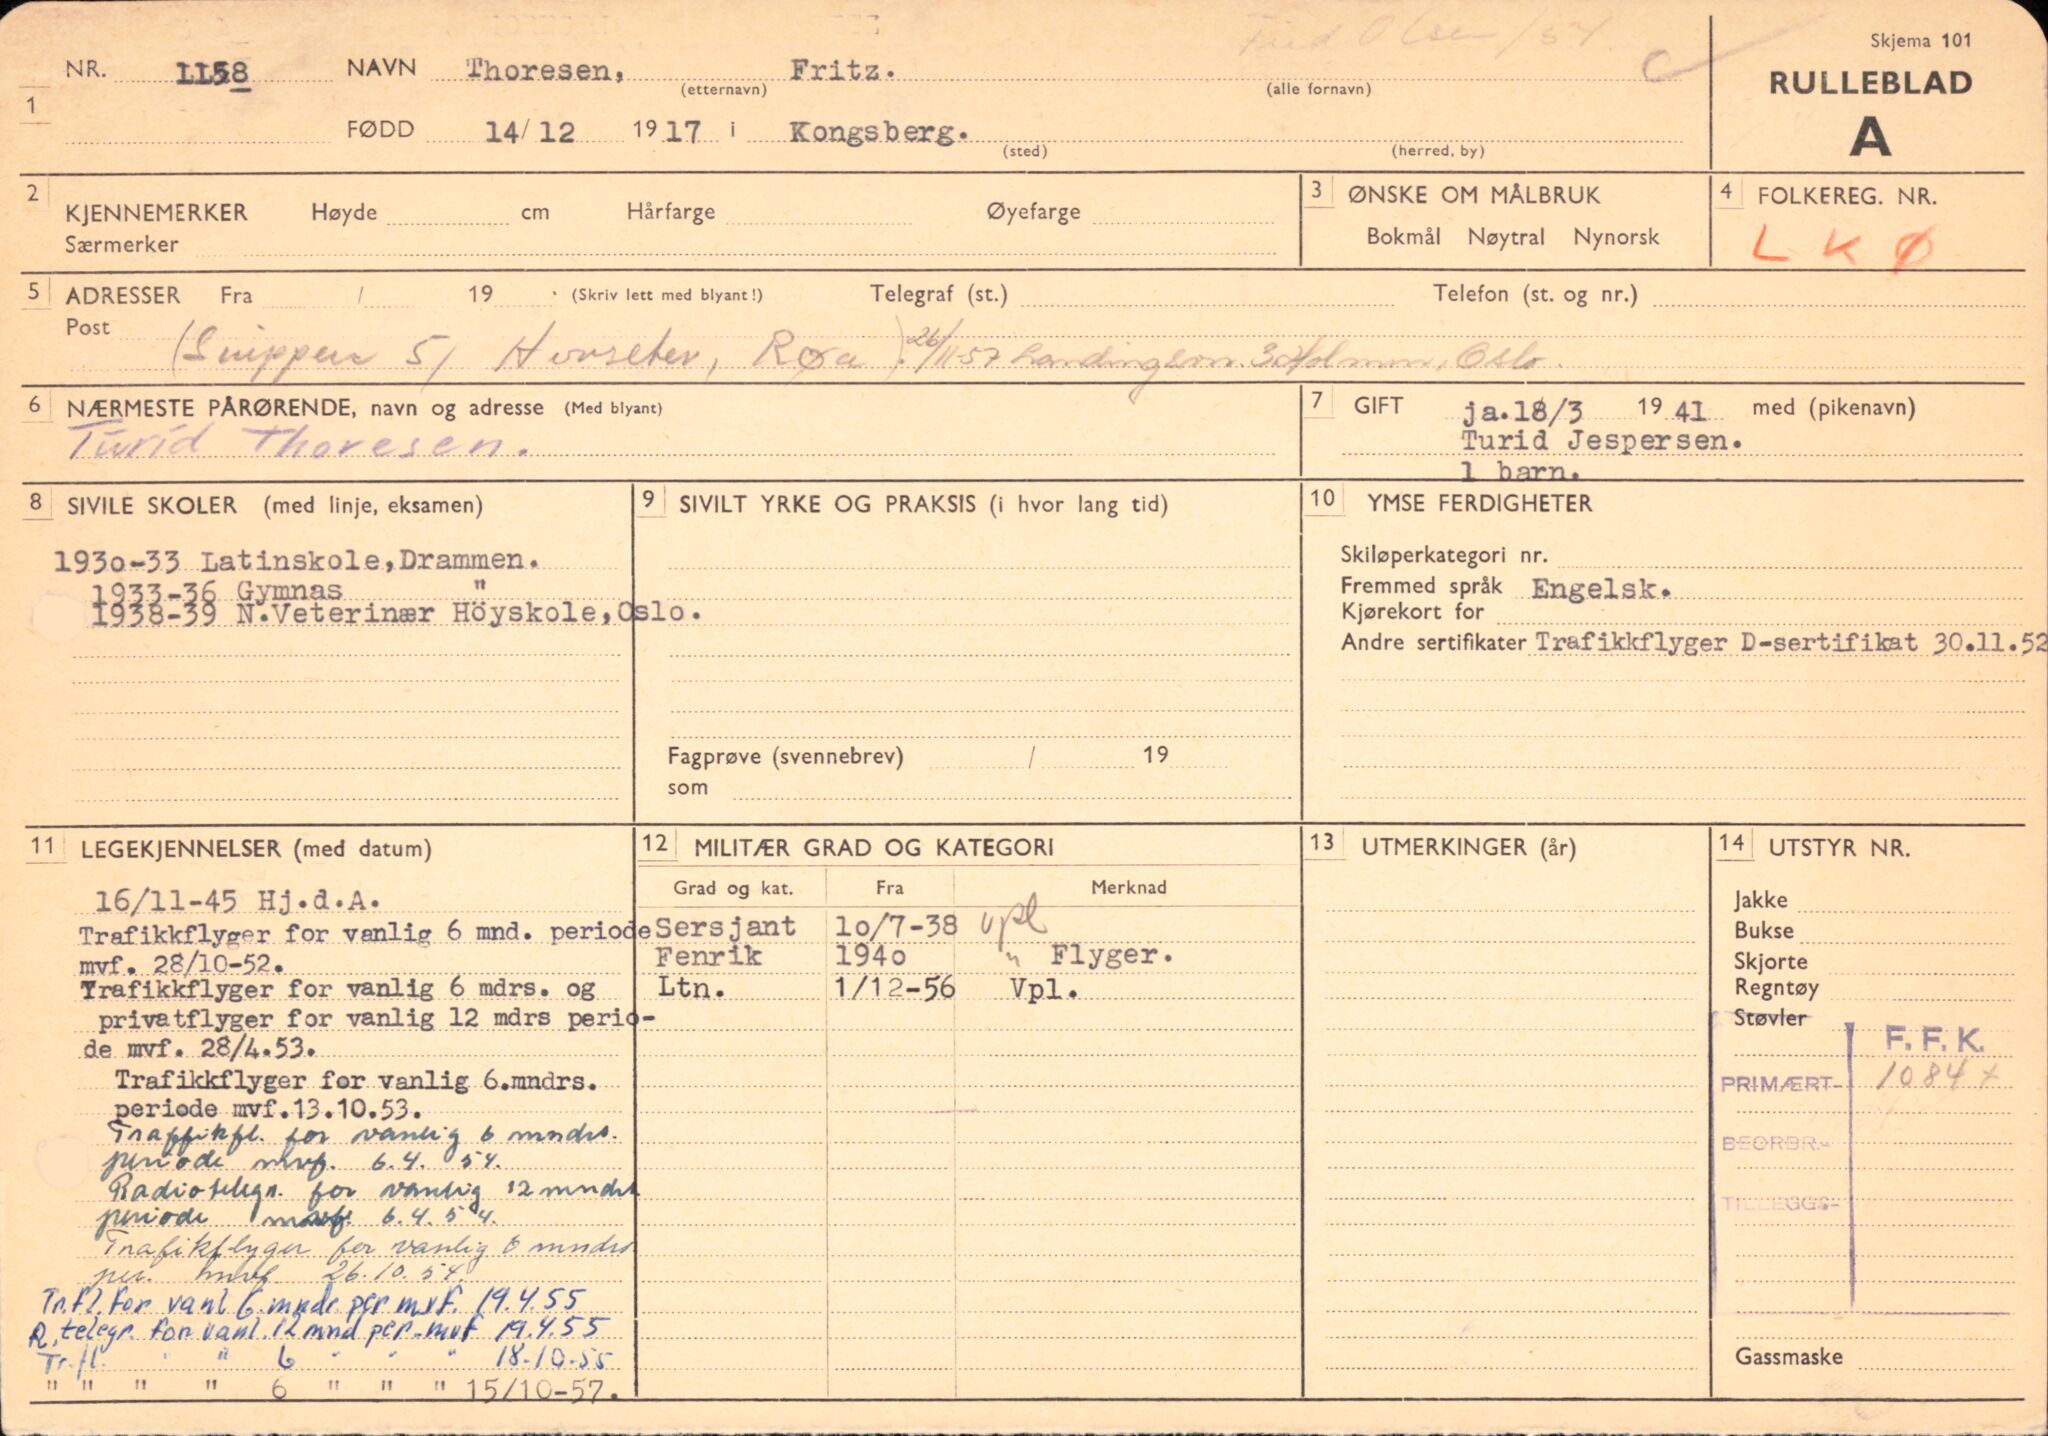 Fred Olsen/54.
Skjema 101
NR. 1158 NAVN Thoresen, Fritz.
(etternavn) (alle fornavn)
RULLEBLAD
A
1
FØDD 14/12 1917 i Kongsberg.
(sted) (herred, by)
2 KJENNEMERKER Høyde cm Hårfarge Øyefarge
Særmerker
3 ØNSKE OM MÅLBRUK
Bokmål Nøytral Nynorsk
4 FOLKEREG. NR.
L K Ø
5 ADRESSER Fra / 19 (Skriv lett med blyant!) Telegraf (st.) Telefon (st. og nr.)
Post
(Snippen 5, Hovseter, Røa). 26/11-57 Landingsvn. 30 Holmen, Oslo.
6 NÆRMESTE PÅRØRENDE, navn og adresse (Med blyant)
Turid Thoresen.
7 GIFT ja.18/3 1941 med (pikenavn)
Turid Jespersen.
1 barn.
8 SIVILE SKOLER (med linje, eksamen)
193o-33 Latinskole,Drammen.
1933-36 Gymnas "
1938-39 N.Veterinær Höyskole,Oslo.
9 SIVILT YRKE OG PRAKSIS (i hvor lang tid)
Fagprøve (svennebrev) / 19
som
10 YMSE FERDIGHETER
Skiløperkategori nr.
Fremmed språk Engelsk.
Kjørekort for
Andre sertifikater Trafikkflyger D-sertifikat 30.11.52
11 LEGEKJENNELSER (med datum)
16/11-45 Hj.d.A.
Trafikkflyger for vanlig 6 mnd. periode
mvf. 28/10-52.
Trafikkflyger for vanlig 6 mdrs. og
privatflyger for vanlig 12 mdrs perio-
de mvf. 28/4.53.
Trafikkflyger for vanlig 6.mndrs.
periode mvf.13.10.53.
Traffikfl. for vanlig 6 mndrs.
periode mvf. 6.4. 54.
Radiotelegr. for vanlig 12 mndrs
periode mvf. 6.4.54.
Trafikflyger for vanlig 6 mndrs
per. mvf 26.10.54.
Tr.fl. for vanl 6. mndr per mvf. 19.4.55
R.telegr. for vanl. 12 mnd per. mvf 19.4.55
Tr.fl. " " 6 " " " 18-10-55
" " " " 6 " " " 15/10-57.
12 MILITÆR GRAD OG KATEGORI
Grad og kat. Fra Merknad
Sersjant 1o/7-38 vpl
Fenrik 194o " Flyger.
Ltn. 1/12-56 Vpl.
13 UTMERKINGER (år)
14 UTSTYR NR.
Jakke
Bukse
Skjorte
Regntøy
Støvler
F. F. K.
PRIMÆRT- 1084 +
BEORBR.-
TILLEGGS.-
Gassmaske